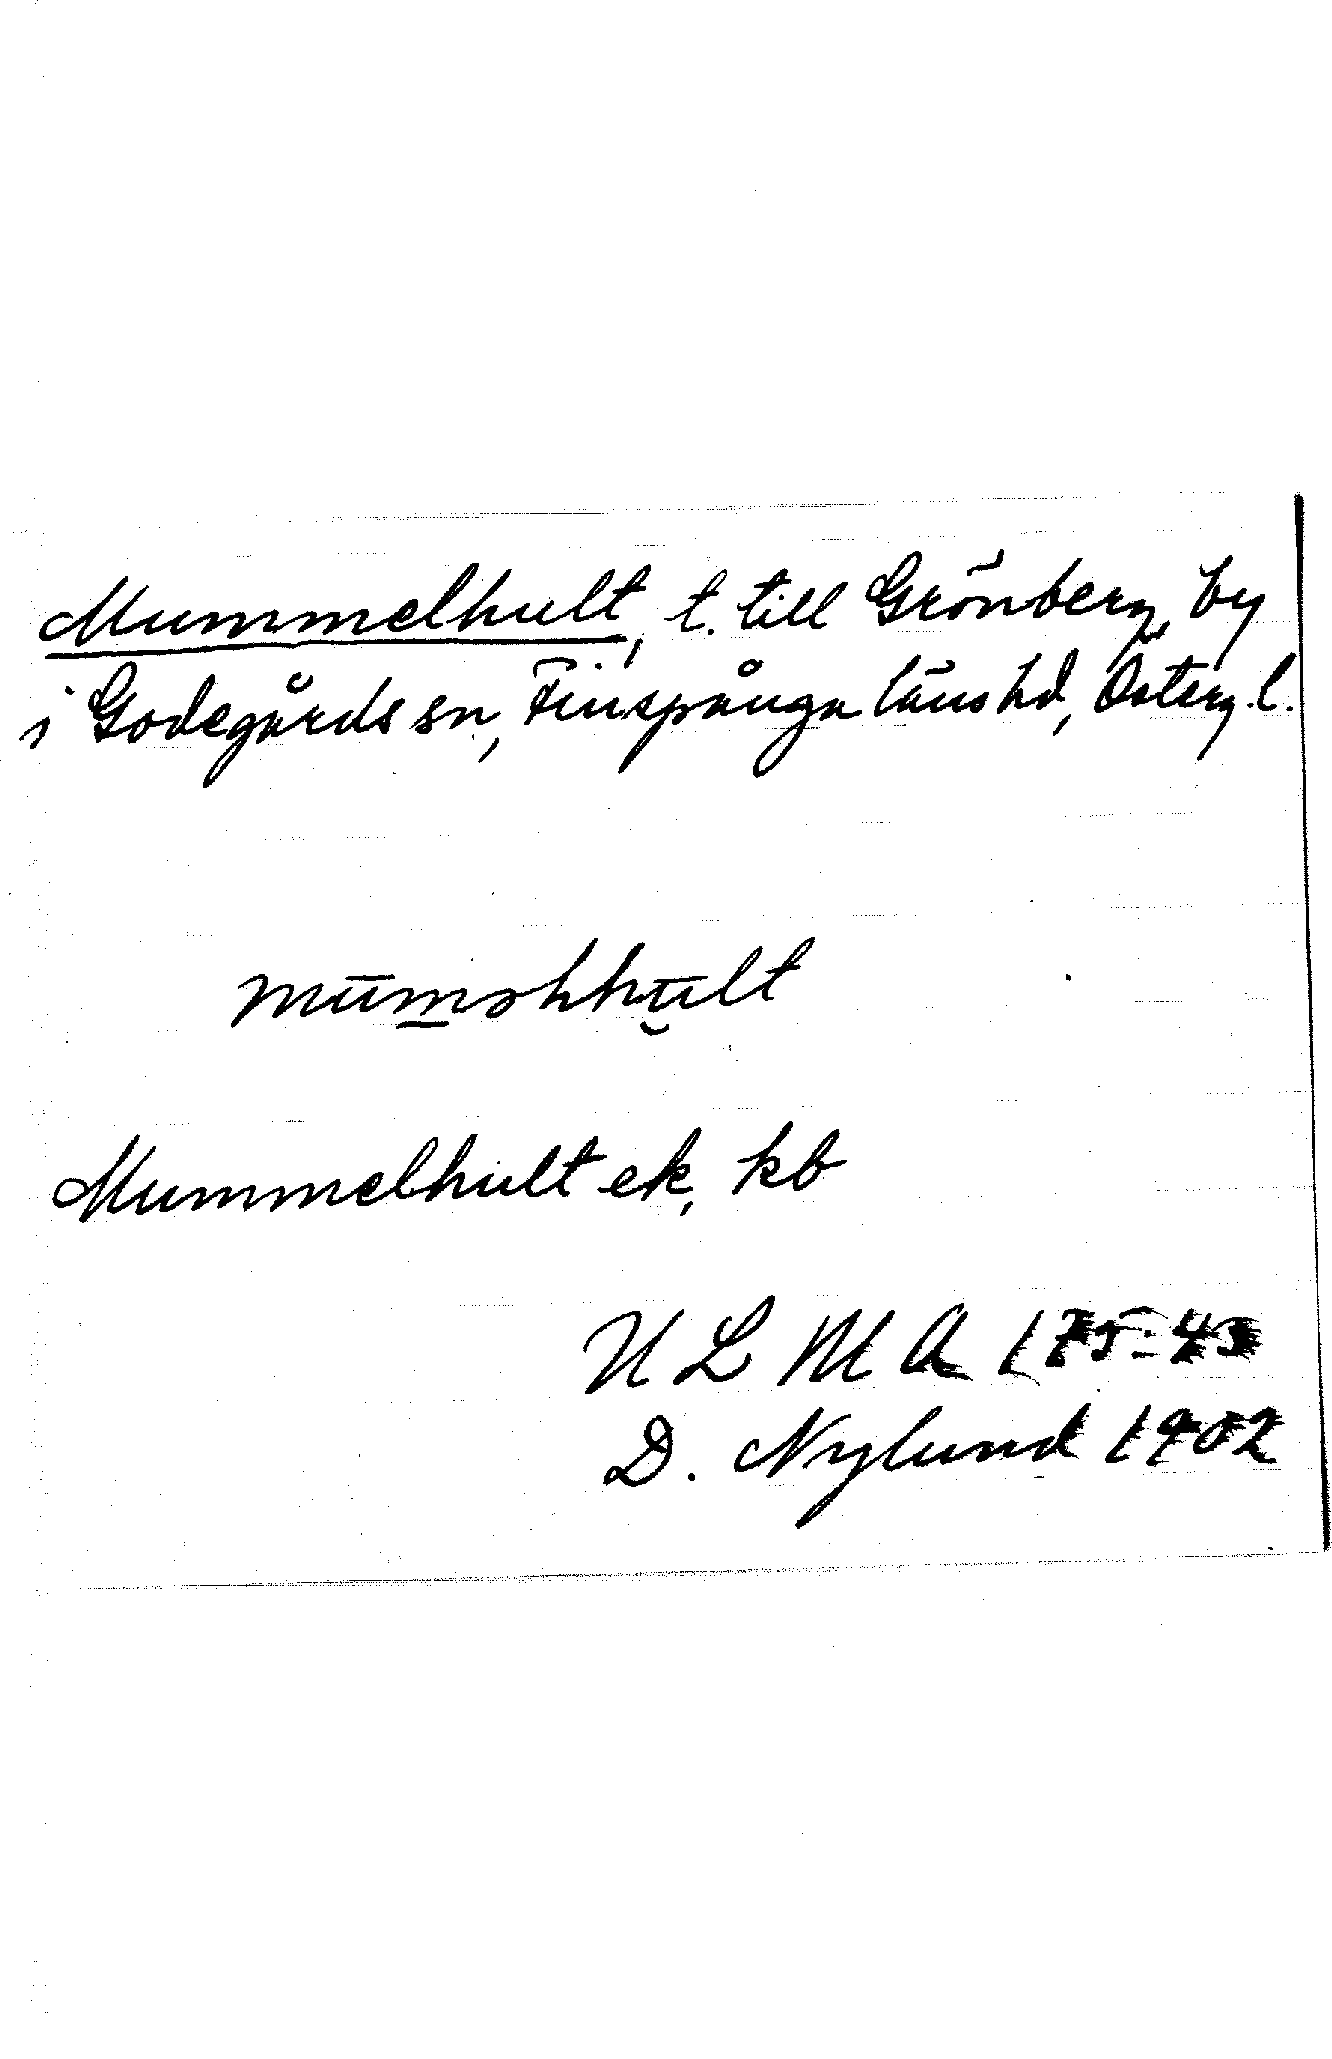 Mummelhult, t. till Grönberg, by
i Godegårds sn, Finspånga läns hd, Österg. l.
Mummelhult ek, kb
ULMA 175:43
D. Nylund 1902